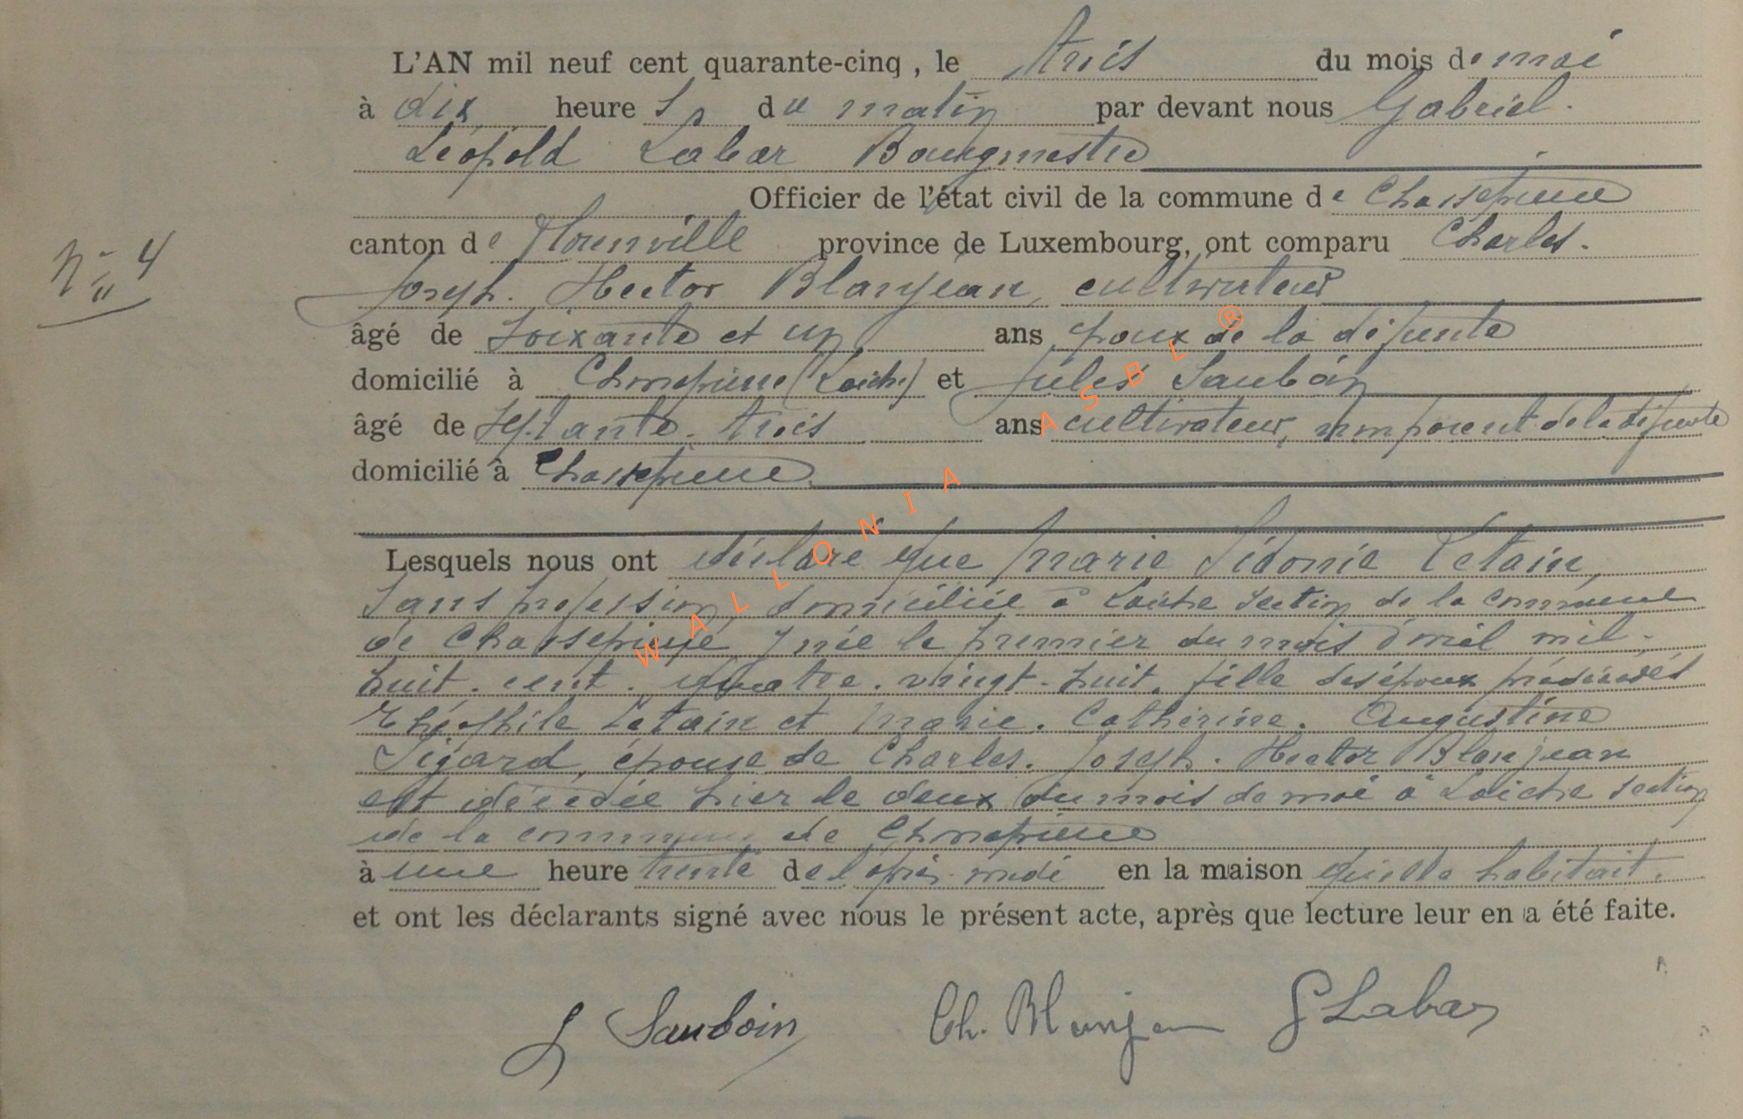 L'AN mil neuf cent quarante-cinq, le trois du mois de mai
à dix heure s du matin par devant nous Gabriel.
Léopold Labar Bourgmestre
Officier de l'état civil de la commune de Chassepierre
canton de Florenville province de Luxembourg, ont comparu Charles.
N° 4
Joseph. Hector Blanjean, cultivateur
âgé de soixante et un ans époux de la défunte
domicilié à Chassepierre (Laiche) et Jules Sauboin
âgé de septante. trois ans cultivateur, non parent de la défunte
domicilié à Chassepierre
Lesquels nous ont déclaré que Marie Sidonie Letain,
sans profession, domiciliée à Laiche section de la commune
de Chassepierre y née le premier du mois d'avril mil.
huit. cent. quatre. vingt. huit. fille des époux prédécédés
Théophile Letain et Marie. Catherine. Augustine
Sigard, épouse de Charles. Joseph. Hector Blanjean
est décédée hier le deux du mois de mai à Laiche section
de la commune de Chassepierre
à une heure trente de l'après midi en la maison qu'elle habitait.
et ont les déclarants signé avec nous le présent acte, après que lecture leur en a été faite.
J Sauboin Ch. Blanjean G Labar
WALLONIA ASBL ®